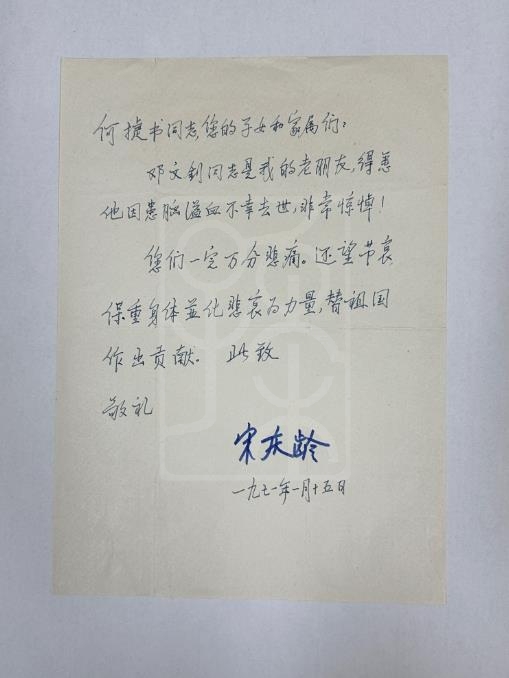 何捷书同志,您的子女和家属们:
邓文钊同志是我的老朋友,得悉
他因患脑溢血不幸去世,非常惊悼!
您们一定万分悲痛。还望节哀
保重身体並化悲哀为力量,替祖国
作出贡献。 此致
敬礼
宋庆龄
一九七一年一月十五日